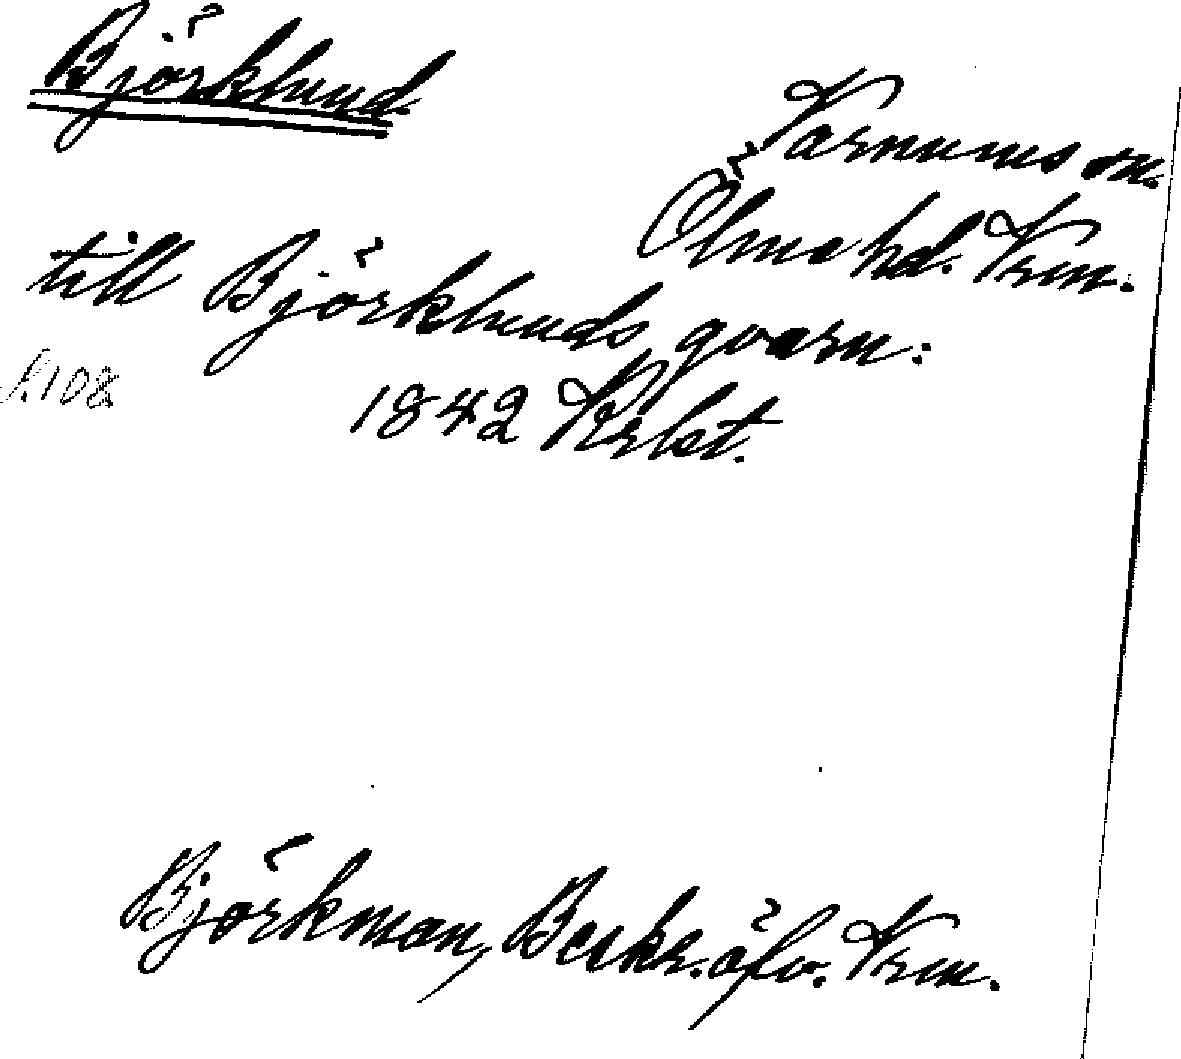 Björklund
Varnums sn.
Ölme hd. Vrm.
till Björklunds qvarn:
s. 108
1842 Krbet.
Björkman, Beskr. öfv. Vrm.